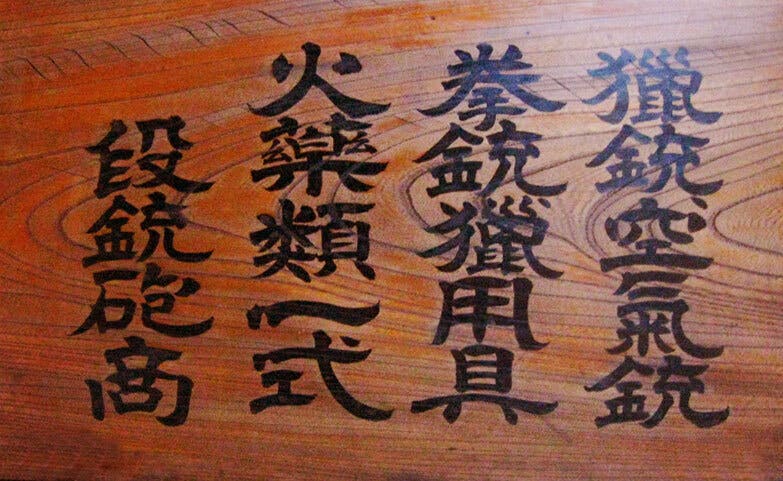 獵銃空氣銃
拳銃獵用具
火藥類一式
段銃砲商